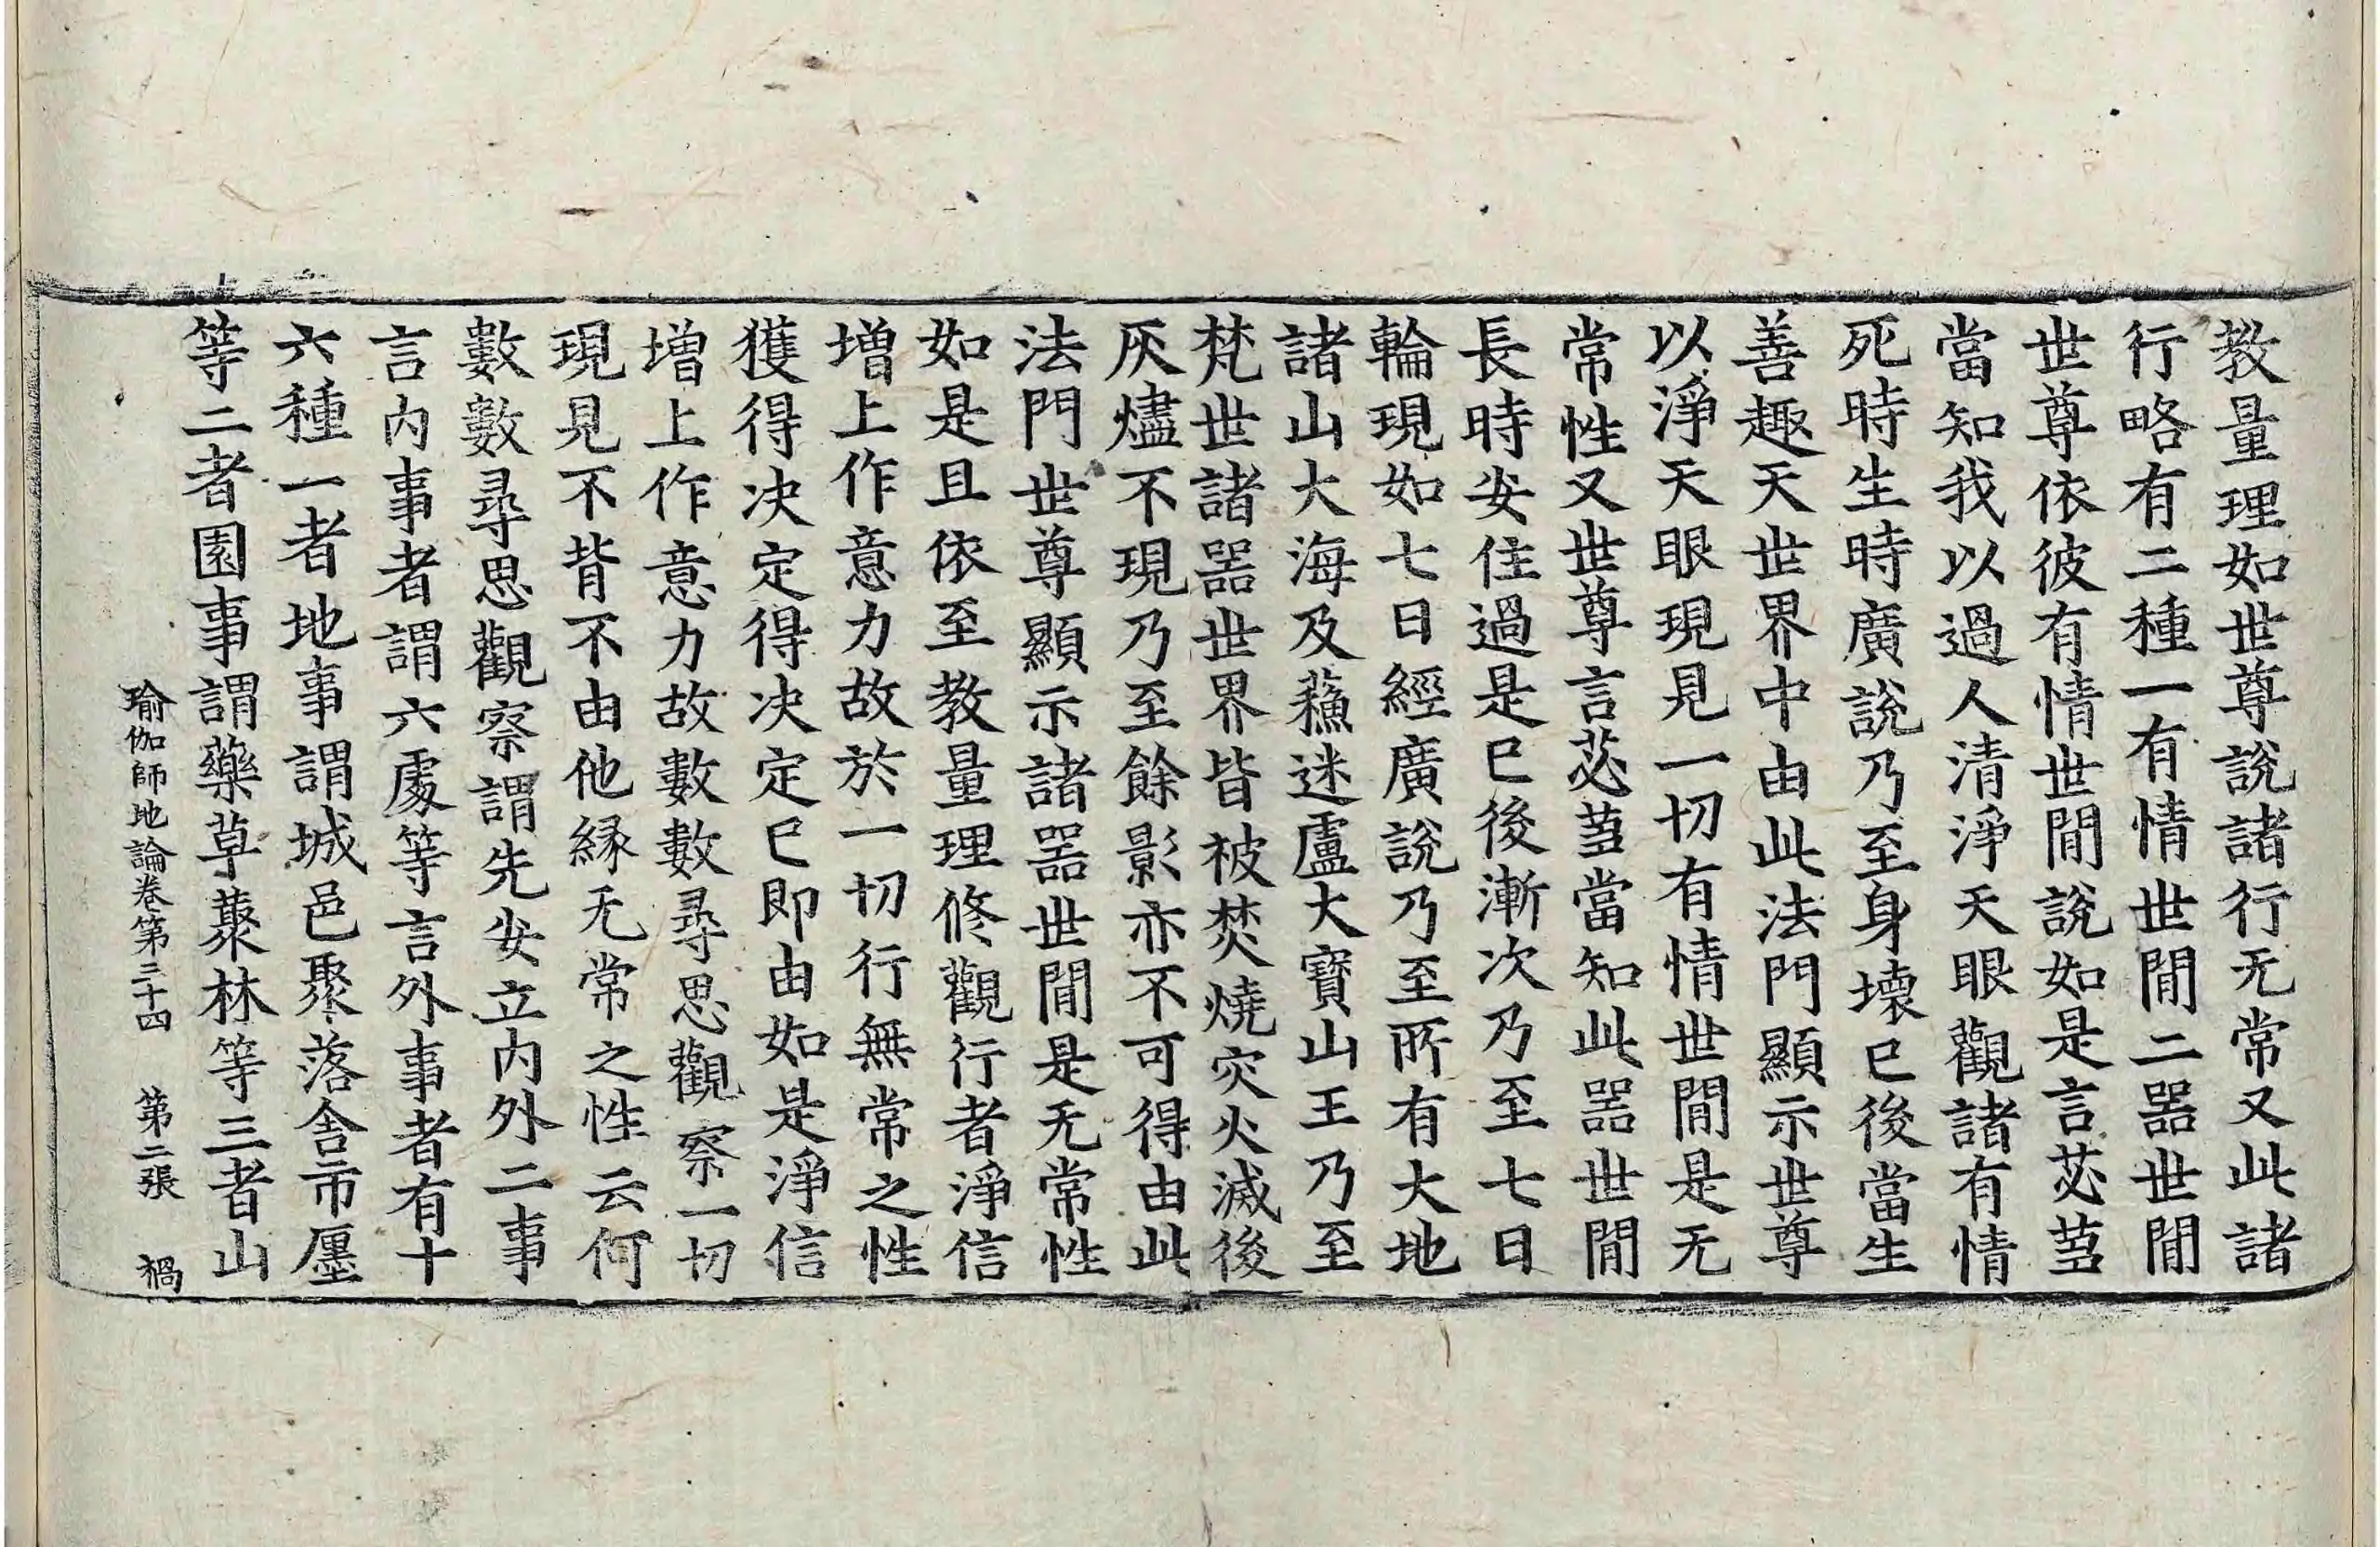 教量理如世尊說諸行无常又此諸
行略有二種一有情世間二器世間
世尊依彼有情世間說如是言苾蒭
當知我以過人清淨天眼觀諸有情
死時生時廣說乃至身壞已後當生
善趣天世界中由此法門顯示世尊
以淨天眼現見一切有情世間是无
常性又世尊言苾蒭當知此器世間
長時安住過是已後漸次乃至七日
輪現如七日經廣說乃至所有大地
諸山大海及蘓迷盧大寶山王乃至
梵世諸器世界皆被焚燒灾火滅後
灰燼不現乃至餘影亦不可得由此
法門世尊顯示諸器世間是无常性
如是且依至教量理修觀行者淨信
增上作意力故於一切行無常之性
獲得决定得决定已即由如是淨信
增上作意力故數數尋思觀察一切
現見不背不由他縁无常之性云何
數數尋思觀察謂先安立內外二事
言內事者謂六處等言外事者有十
六種一者地事謂城邑聚落舍市廛
等二者園事謂藥草叢林等三者山
瑜伽師地論卷第三十四 第二張 禍